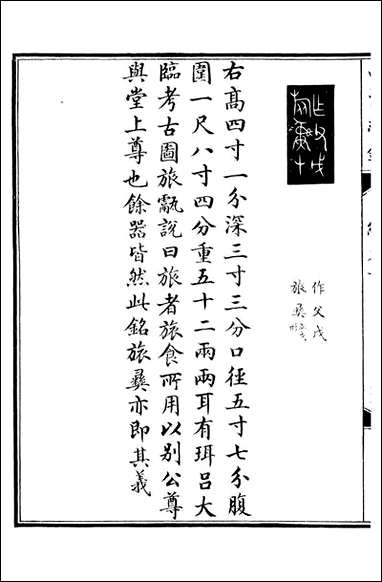 作父戊
旅彝
右高四寸一分深三寸三分口徑五寸七分腹
圍一尺八寸四分重五十二兩兩耳有珥呂大
臨考古圖旅甗說曰旅者旅食所用以別公尊
與堂上尊也餘器皆然此銘旅彝亦即其義